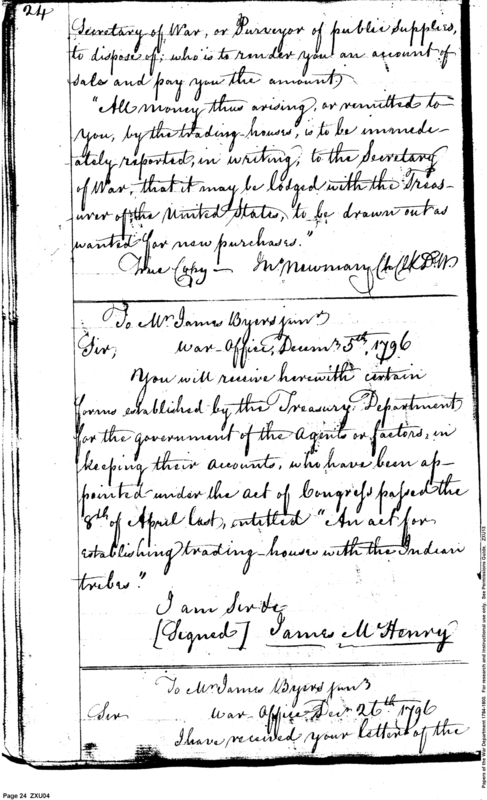 24
Secretary of War, or Purveyor of public supplies,
to dispose of; who is to render you an account of
sales and pay you the amount
"All money thus arising, or remitted to
you, by the trading-houses, is to be immede-
ately reported, in writing, to the Secretary
of War, that it may be lodged with the Treas-
urer of the United States, to be drawn out as
wanted for new purchases."
True Copy — Jno Newman Ch Clk D.W.
To Mr James Byers junr
Sir, War-Office, Decemr 5th, 1796
You will receive herewith certain
forms established by the Treasury Department
for the government of the Agents or factors, in
keeping their accounts, who have been ap-
pointed under the act of Congress passed the
8th of April last, entitled "An act for
establishing trading-houses with the Indian
tribes."
I am Sir &c
[Signed] James McHenry
To Mr James Byers junr
Sir War-Office Decr 26th 1796
I have received your letters of the
Page 24 ZXU04
Papers of the War Department 1784-1800. For research and instructional use only. See Permissions Guide. ZXU13